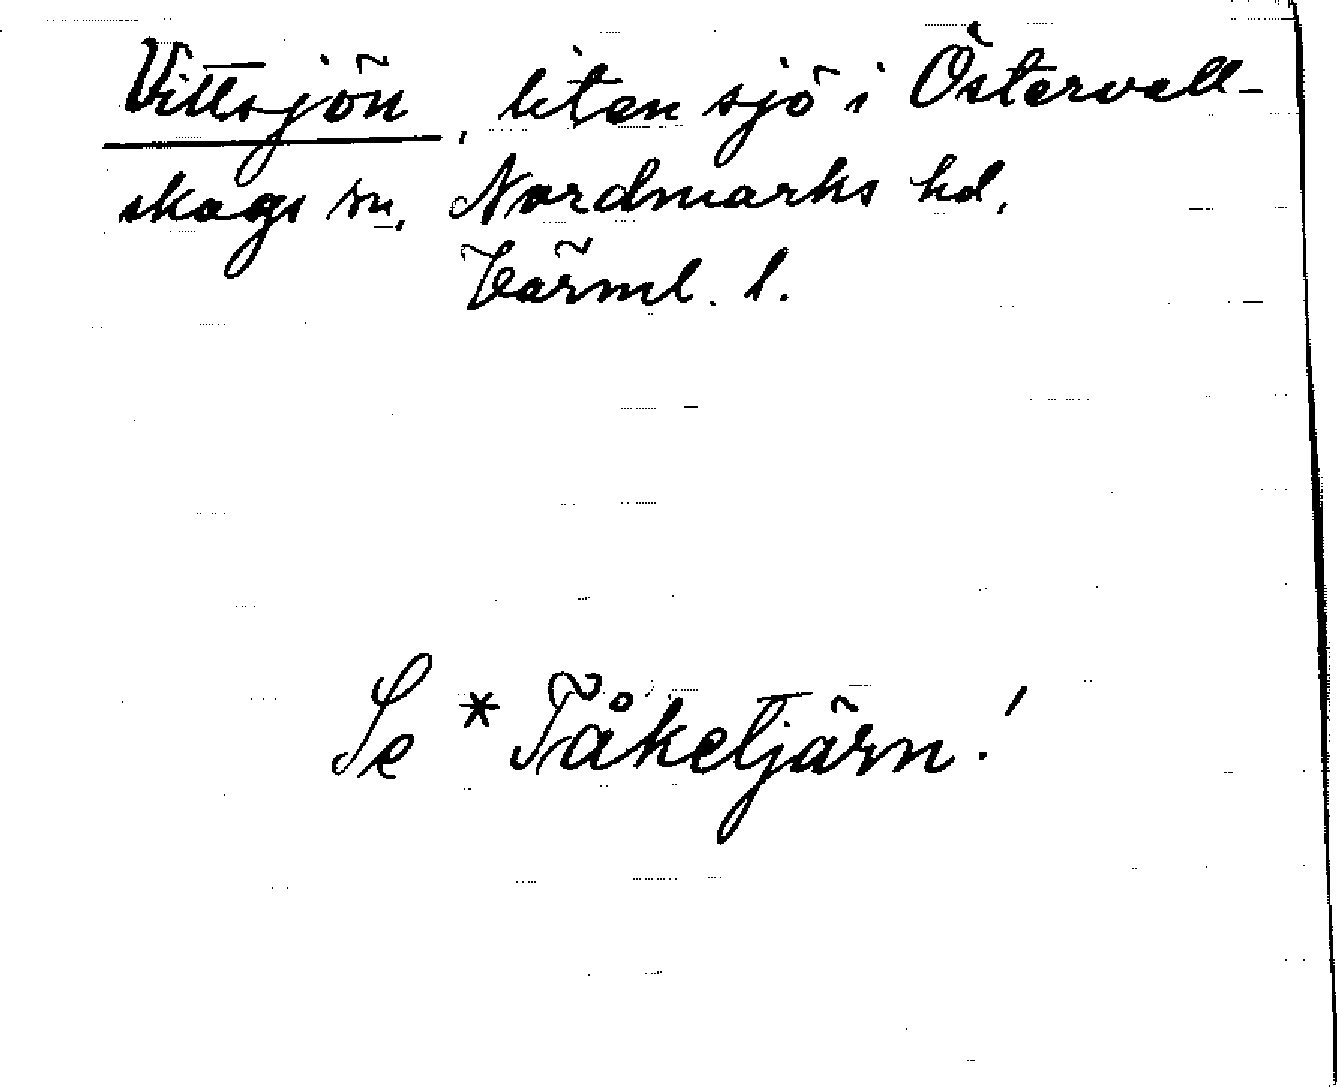 Vittsjön, liten sjö i Östervall-
skogs sn, Nordmarks hd,
Värml. l.
Se *Tåketjärn!